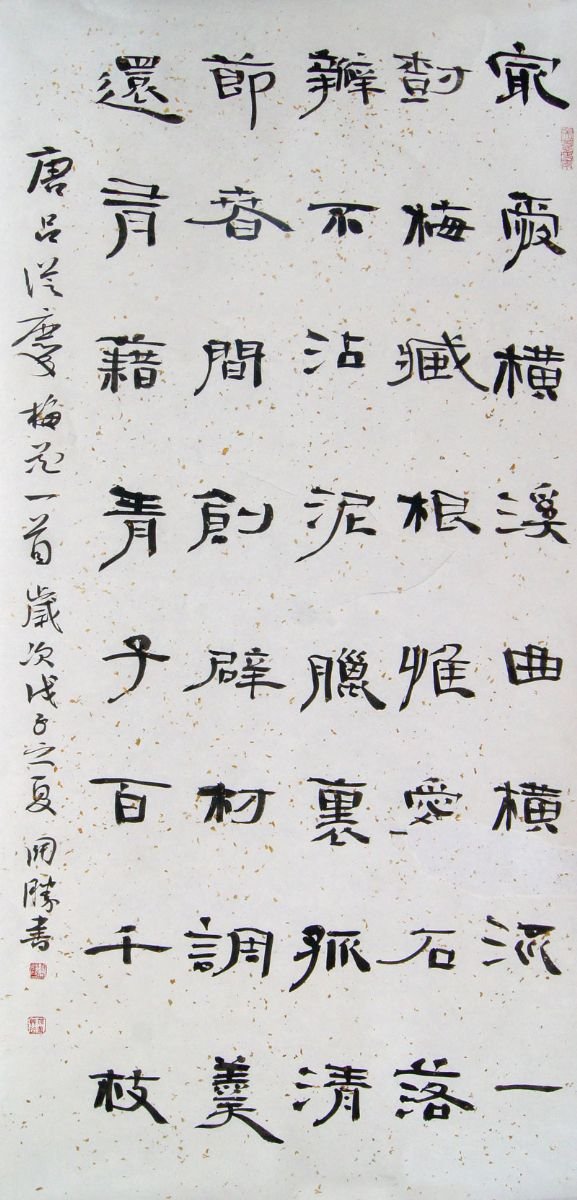 最愛橫溪曲橫派一
樹梅藏根惟愛石落
瓣不沾泥臘裏孤清
節春間創辟材調羹
還有藉青子百千枝
唐呂從慶梅花一首歲次戊子之夏開勝書